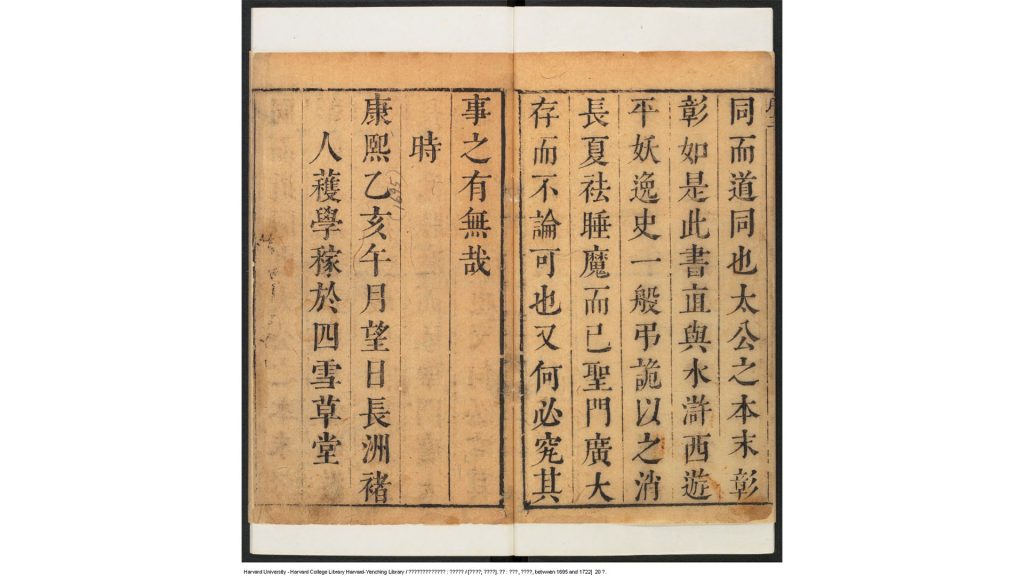 同而道同也太公之本末彰
彰如是此書直與水滸西遊
平妖逸史一般弔詭以之消
長夏祛睡魔而已聖門廣大
存而不論可也又何必究其
事之有無哉
時
康熙乙亥午月望日長洲褚
(1695)
人穫學稼於四雪草堂
Harvard University - Harvard College Library Harvard-Yenching Library / ????????????? : ????? / [????; ????]. ?? : ???, ????, between 1695 and 1722] 20 ?.